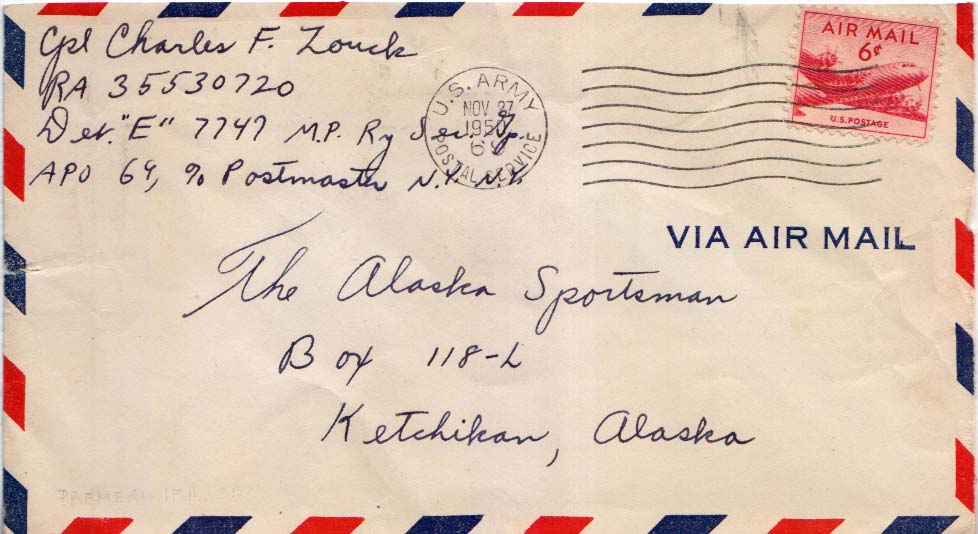 Cpl Charles F. Zouck
RA 35530720
Det. "E" 7747 M.P. Ry Sec. Gp.
APO 69, % Postmaster N.Y. N.Y.
U.S. ARMY
NOV 27
1950
69
POSTAL SERVICE
AIR MAIL
6¢
U.S. POSTAGE
VIA AIR MAIL
The Alaska Sportsman
Box 118-L
Ketchikan, Alaska